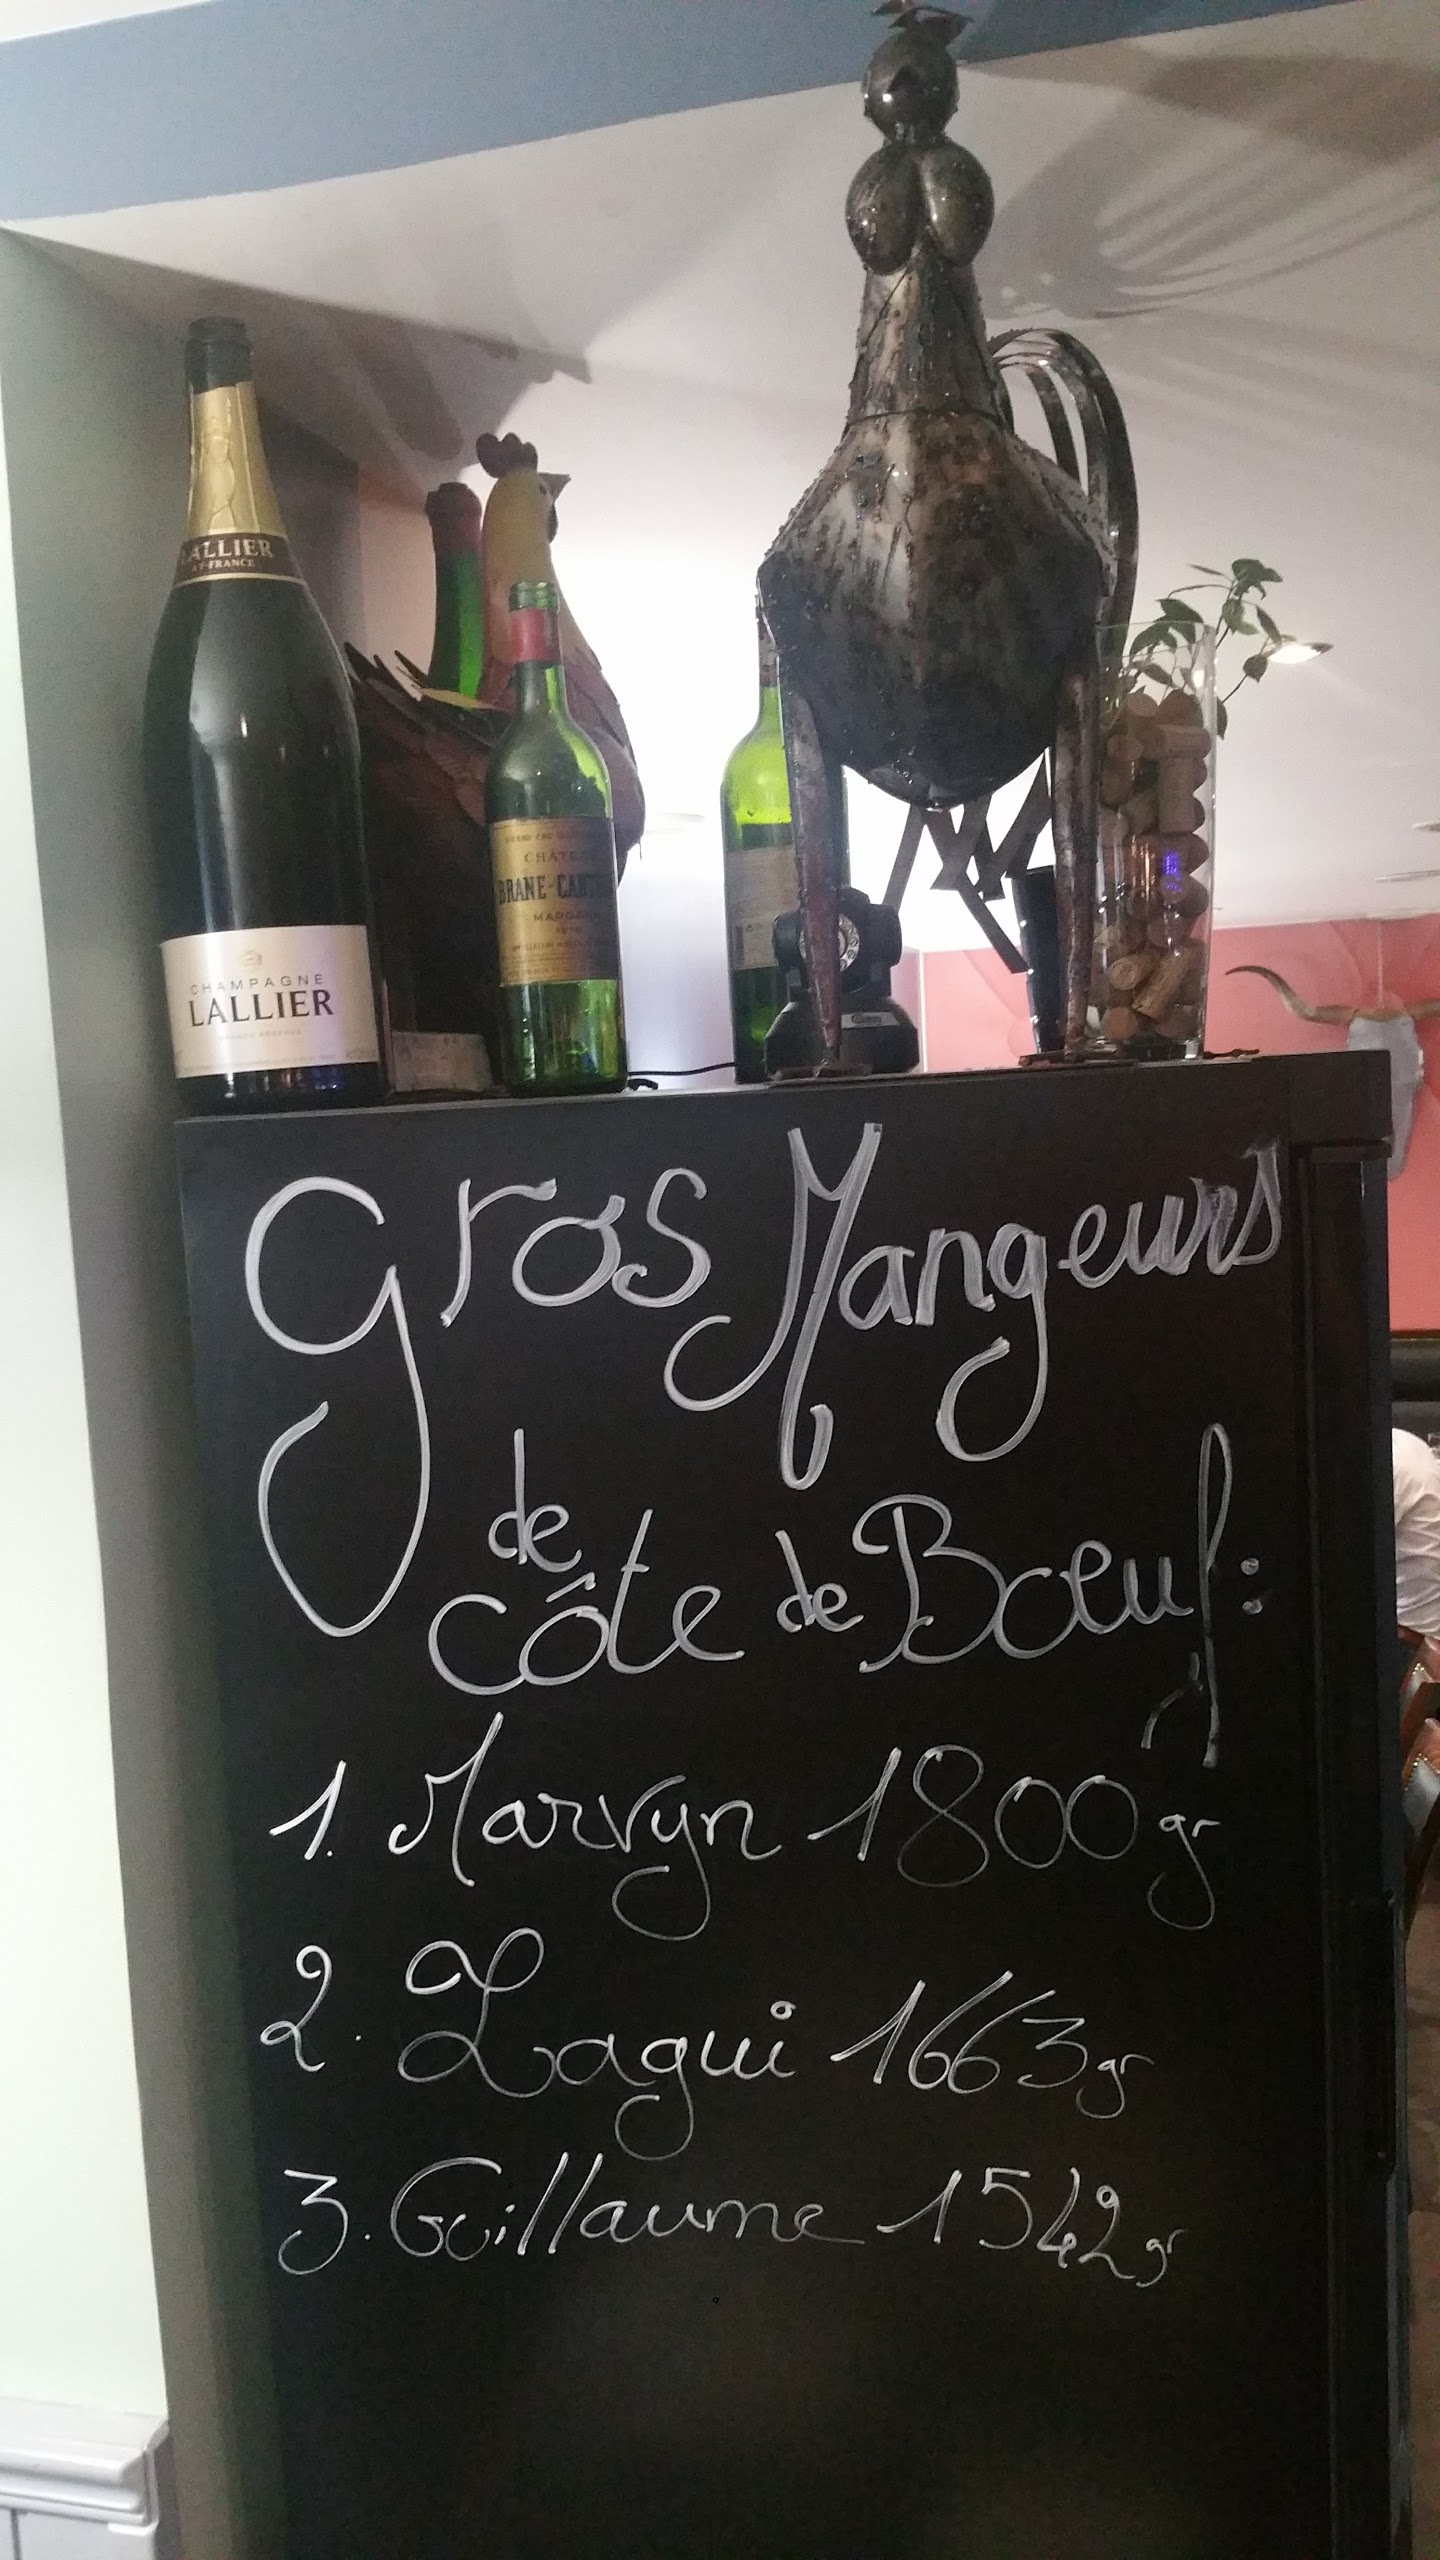 LALLIER
AY-FRANCE
CHAMPAGNE
LALLIER
GRANDE RÉSERVE
BRANE-CANT
MARGAUX
Gros Mangeurs
de
côte de Bœuf:
1. Marvyn 1800gr
2. Lagui 1663gr
3. Guillaume 1542gr